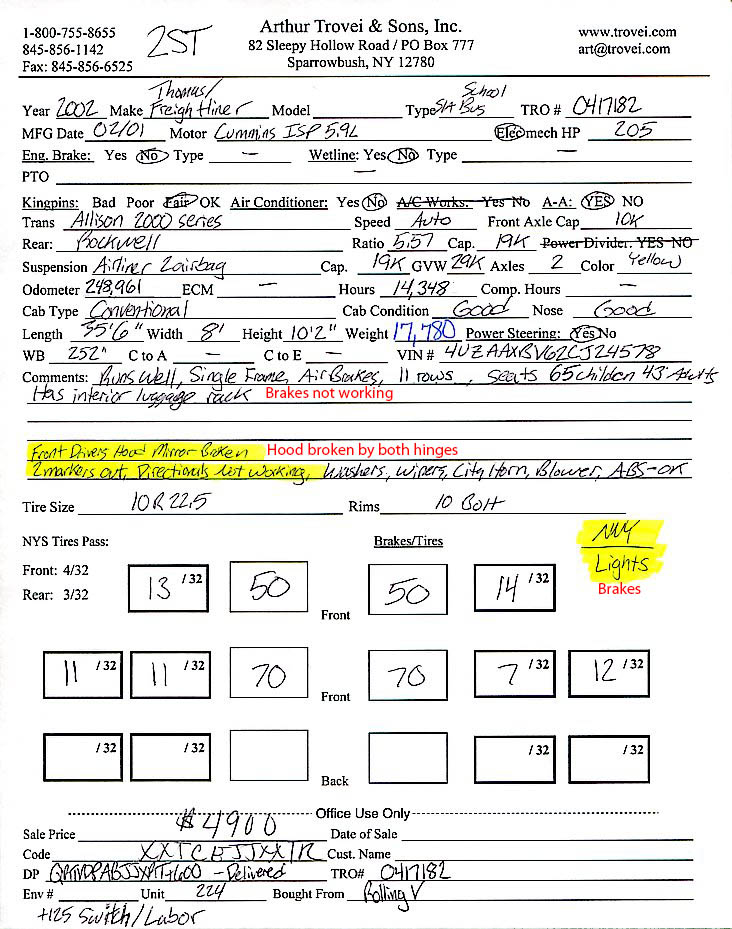 1-800-755-8655
845-856-1142
Fax: 845-856-6525
2ST
Arthur Trovei & Sons, Inc.
82 Sleepy Hollow Road / PO Box 777
Sparrowbush, NY 12780
www.trovei.com
art@trovei.com
Thomas/ School
Year 2002 Make Freightliner Model Type S/A Bus TRO # 0417182
MFG Date 02/01 Motor Cummins ISP 5.9L Elec mech HP 205
Eng. Brake: Yes No Type — Wetline: Yes No Type —
PTO —
Kingpins: Bad Poor Fair OK Air Conditioner: Yes No A/C Works: Yes No A-A: YES NO
Trans Allison 2000 series Speed Auto Front Axle Cap 10K
Rear: Rockwell Ratio 5.57 Cap. 19K Power Divider. YES NO
Suspension Airliner 2airbag Cap. 19K GVW 29K Axles 2 Color Yellow
Odometer 248,961 ECM — Hours 14,348 Comp. Hours —
Cab Type Conventional Cab Condition Good Nose Good
Length 35'6" Width 8' Height 10'2" Weight 17,780 Power Steering: Yes No
WB 252" C to A — C to E — VIN # 4UZAAXBV62CJ24578
Comments: Runs Well, Single Frame, Air Brakes, 11 rows, seats 65 childen 43 Adults
Has interior luggage rack Brakes not working
Front Drivers Hood Mirror Broken Hood broken by both hinges
2 markers out, Directionals not working, Washers, Wipers, City Horn, Blower, ABS-OK
Tire Size 10R22.5 Rims 10 Bolt
NYS Tires Pass: Brakes/Tires
Front: 4/32
Rear: 3/32
Lights
Brakes
13 /32 50 Front 50 14 /32
11 /32 11 /32 70 Front 70 7 /32 12 /32
/32 /32 Back /32 /32
Office Use Only
Sale Price $4900 Date of Sale
Code XXTCEJJXX/R Cust. Name
DP - Delivered TRO# 0417182
Env # Unit 224 Bought From Rolling V
+125 Switch/Labor